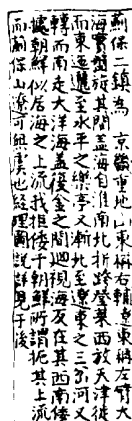 薊保二鎮為 京畿重地山東稱右輔遼東稱左臂大
海實盤旋其間蓋海自淮南北折跨登萊西放天津徒
而東迤邐至永平之樂亭又漸北至遼東之三岔河又
轉而南走大洋海蓋復金之間迴視海反在其西南倭
據朝鮮似居海之上流我拒倭于朝鮮所謂扼其上流
而薊保山遼可無虞也經理圖說詳見于後